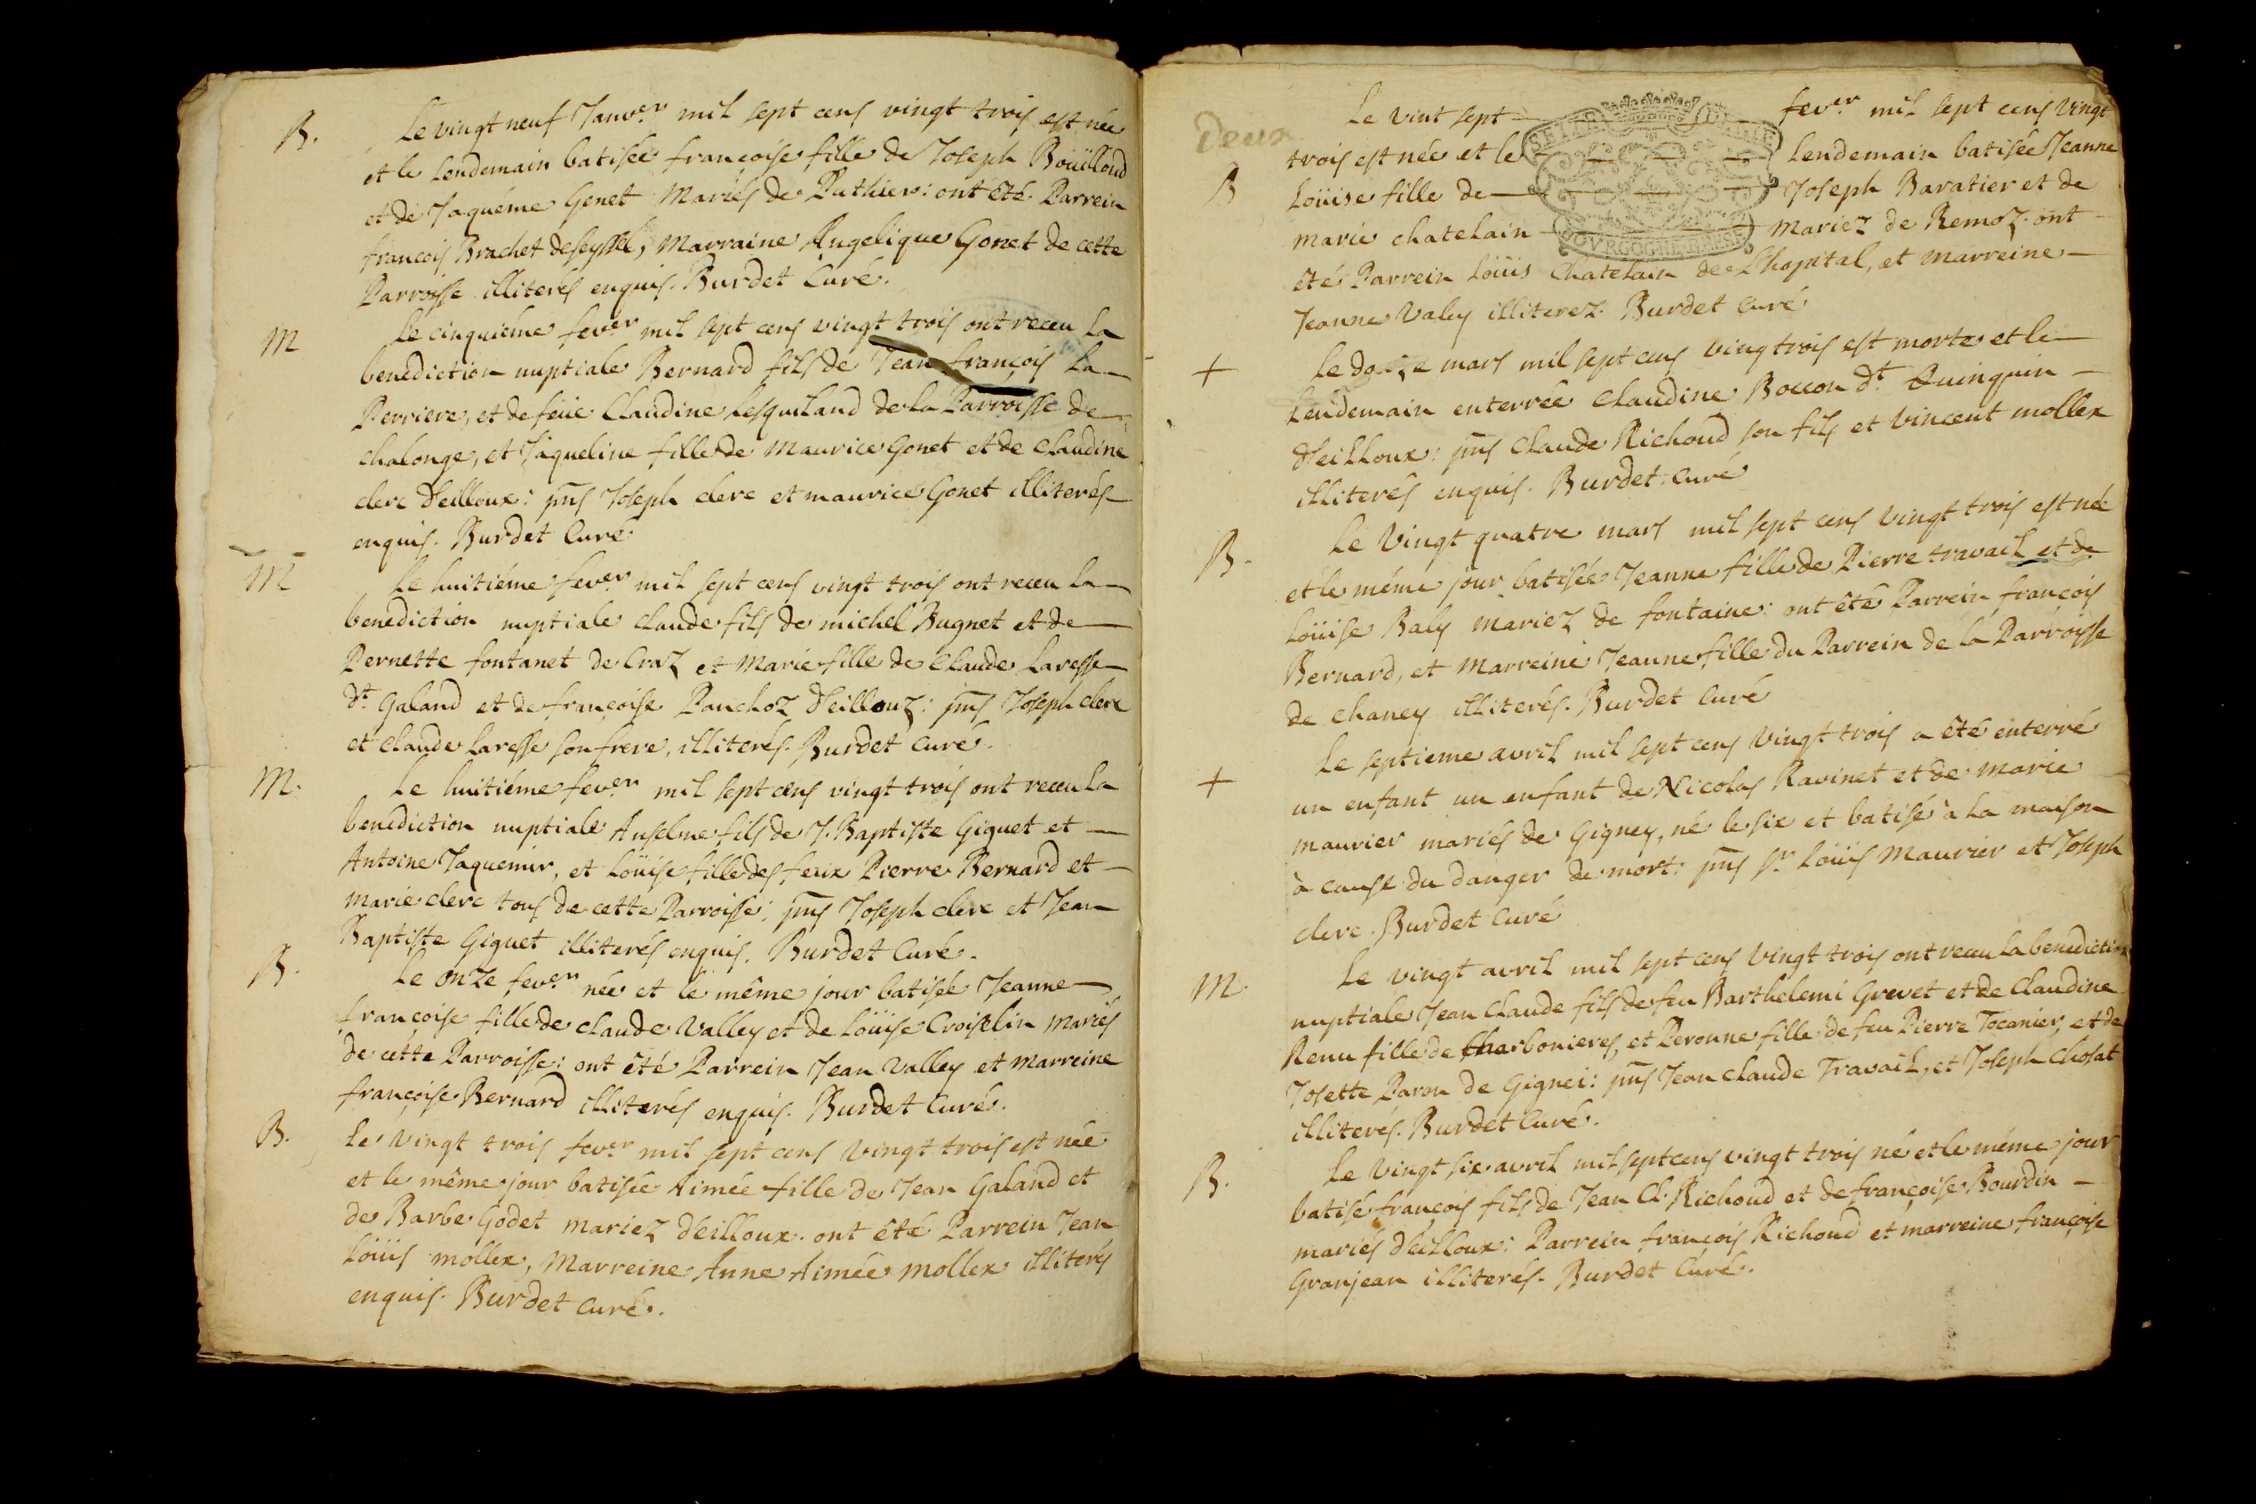 B. Le vingt neuf Janv.er mil sept cens vingt trois est née
et le lendemain batisée françoise fille de Joseph Boüilloud
et de Jaquéme Genet Mariés de Puthier: ont été Parrein
francois Brachet de seyssel, Marraine Angelique Gonet de cette
Parroisse illiterés enquis. Burdet Curé.
M Le cinquiéme fev.er mil sept cens vingt trois ont receu la
benediction nuptiale Bernard fils de Jean françois La
Perriere, et de feüe Claudine Lesquiland de la Parroisse de
chalonge, et Jaqueline fille de Maurice Gonet et de Claudine
clerc d'eilloux: pns Joseph clerc et maurice Gonet illiterés
enquis. Burdet Curé
M Le huitiéme fev.er mil sept cens vingt trois ont receu la
benediction nuptiale claude fils de michel Bugnet et de
Pernette fontanet de Craz et Marie fille de Claude Laresse
dt Galand et de françoise Panchoz d'eillouz: pns Joseph clerc
et claude Laresse son frere, illiterés. Burdet curé.
M. Le huitiéme fev.er mil sept cens vingt trois ont receu la
benediction nuptiale Anselme fils de J. Baptiste Giguet et
Antoine Jaquemir, et Loüise fille des feux Pierre Bernard et
marie clerc tous de cette Parroisse: pns Joseph clerc et Jean
Baptiste Giguet illiterés enquis. Burdet Curé.
B. Le onze fev.er née et le même jour batisée Jeanne
françoise fille de claude Valley et de Loüise Croiselin Mariés
de cette Parroisse: ont été Parrein Jean Valley et marreine
françoise Bernard illiterés enquis. Burdet Curé.
B. Le vingt trois fev.er mil sept cens vingt trois est née
et le même jour batisée Aimée fille de Jean Galand et
de Barbe Godet mariez d'eilloux. ont été Parrein Jean
Loüis mollex, Marreine Anne Aimée mollex illiterés
enquis. Burdet curé.
deux
Le vint sept fev.er mil sept cens vingt
B trois est née et le lendemain batisée Jeanne
Loüise fille de Joseph Baratier et de
marie chatelain mariez de Remoz. ont
été Parrein Loüis Chatelain de Lhopital, et marreine
Jeanne Valey illiterez. Burdet curé
+ Le mars mil sept cens ving trois est morte et le
Lendemain enterrée Claudine Boccon dt Quinquin
d'eilloux: pns Claude Richoud son fils et vincent mollex
illiterés enquis. Burdet: curé
B. Le vingt quatre mars mil sept cens vingt trois est née
et le même jour batisée Jeanne fille de Pierre travail et de
Loüise Baly mariez de fontaine: ont été Parrein françois
Bernard, et Marreine Jeanne fille du Parrein de la Parroisse
de chaney illiterés. Burdet curé
+ Le septieme avril mil sept cens vingt trois a été enterré
un enfant un enfant de Nicolas Ravinet et de marie
maurier mariés de Gigney, né le six et batisé à la maison
à cause du danger de mort: pns sr. Loüis Maurier et Joseph
clerc. Burdet curé
M Le vingt avril mil sept cens vingt trois ont receu la benediction
nuptiale Jean Claude fils de feu Barthelemi Grevet et de Claudine
Renu fille de Charbonieres, et Peronne fille de feu Pierre Tocanier, et de
Josette Paron de Gignei: pns Jean claude Travail, et Joseph Chosat
illiterés. Burdet Curé.
B. Le vingt six avril mil sept cens vingt trois né et le même jour
batisé françois fils de Jean Cl. Richoud et de françoise Bourdin
mariés d'eilloux: Parrein françois Richoud et marreine françoise
Granjean illiterés. Burdet Curé.